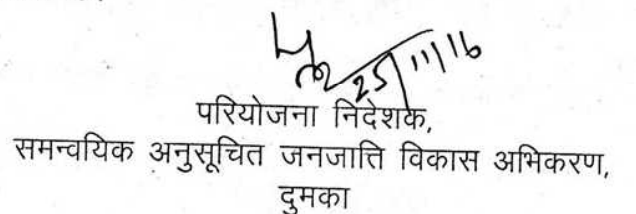 25/11/16
परियोजना निदेशक,
समन्वयिक अनुसूचित जनजाति विकास अभिकरण,
दुमका